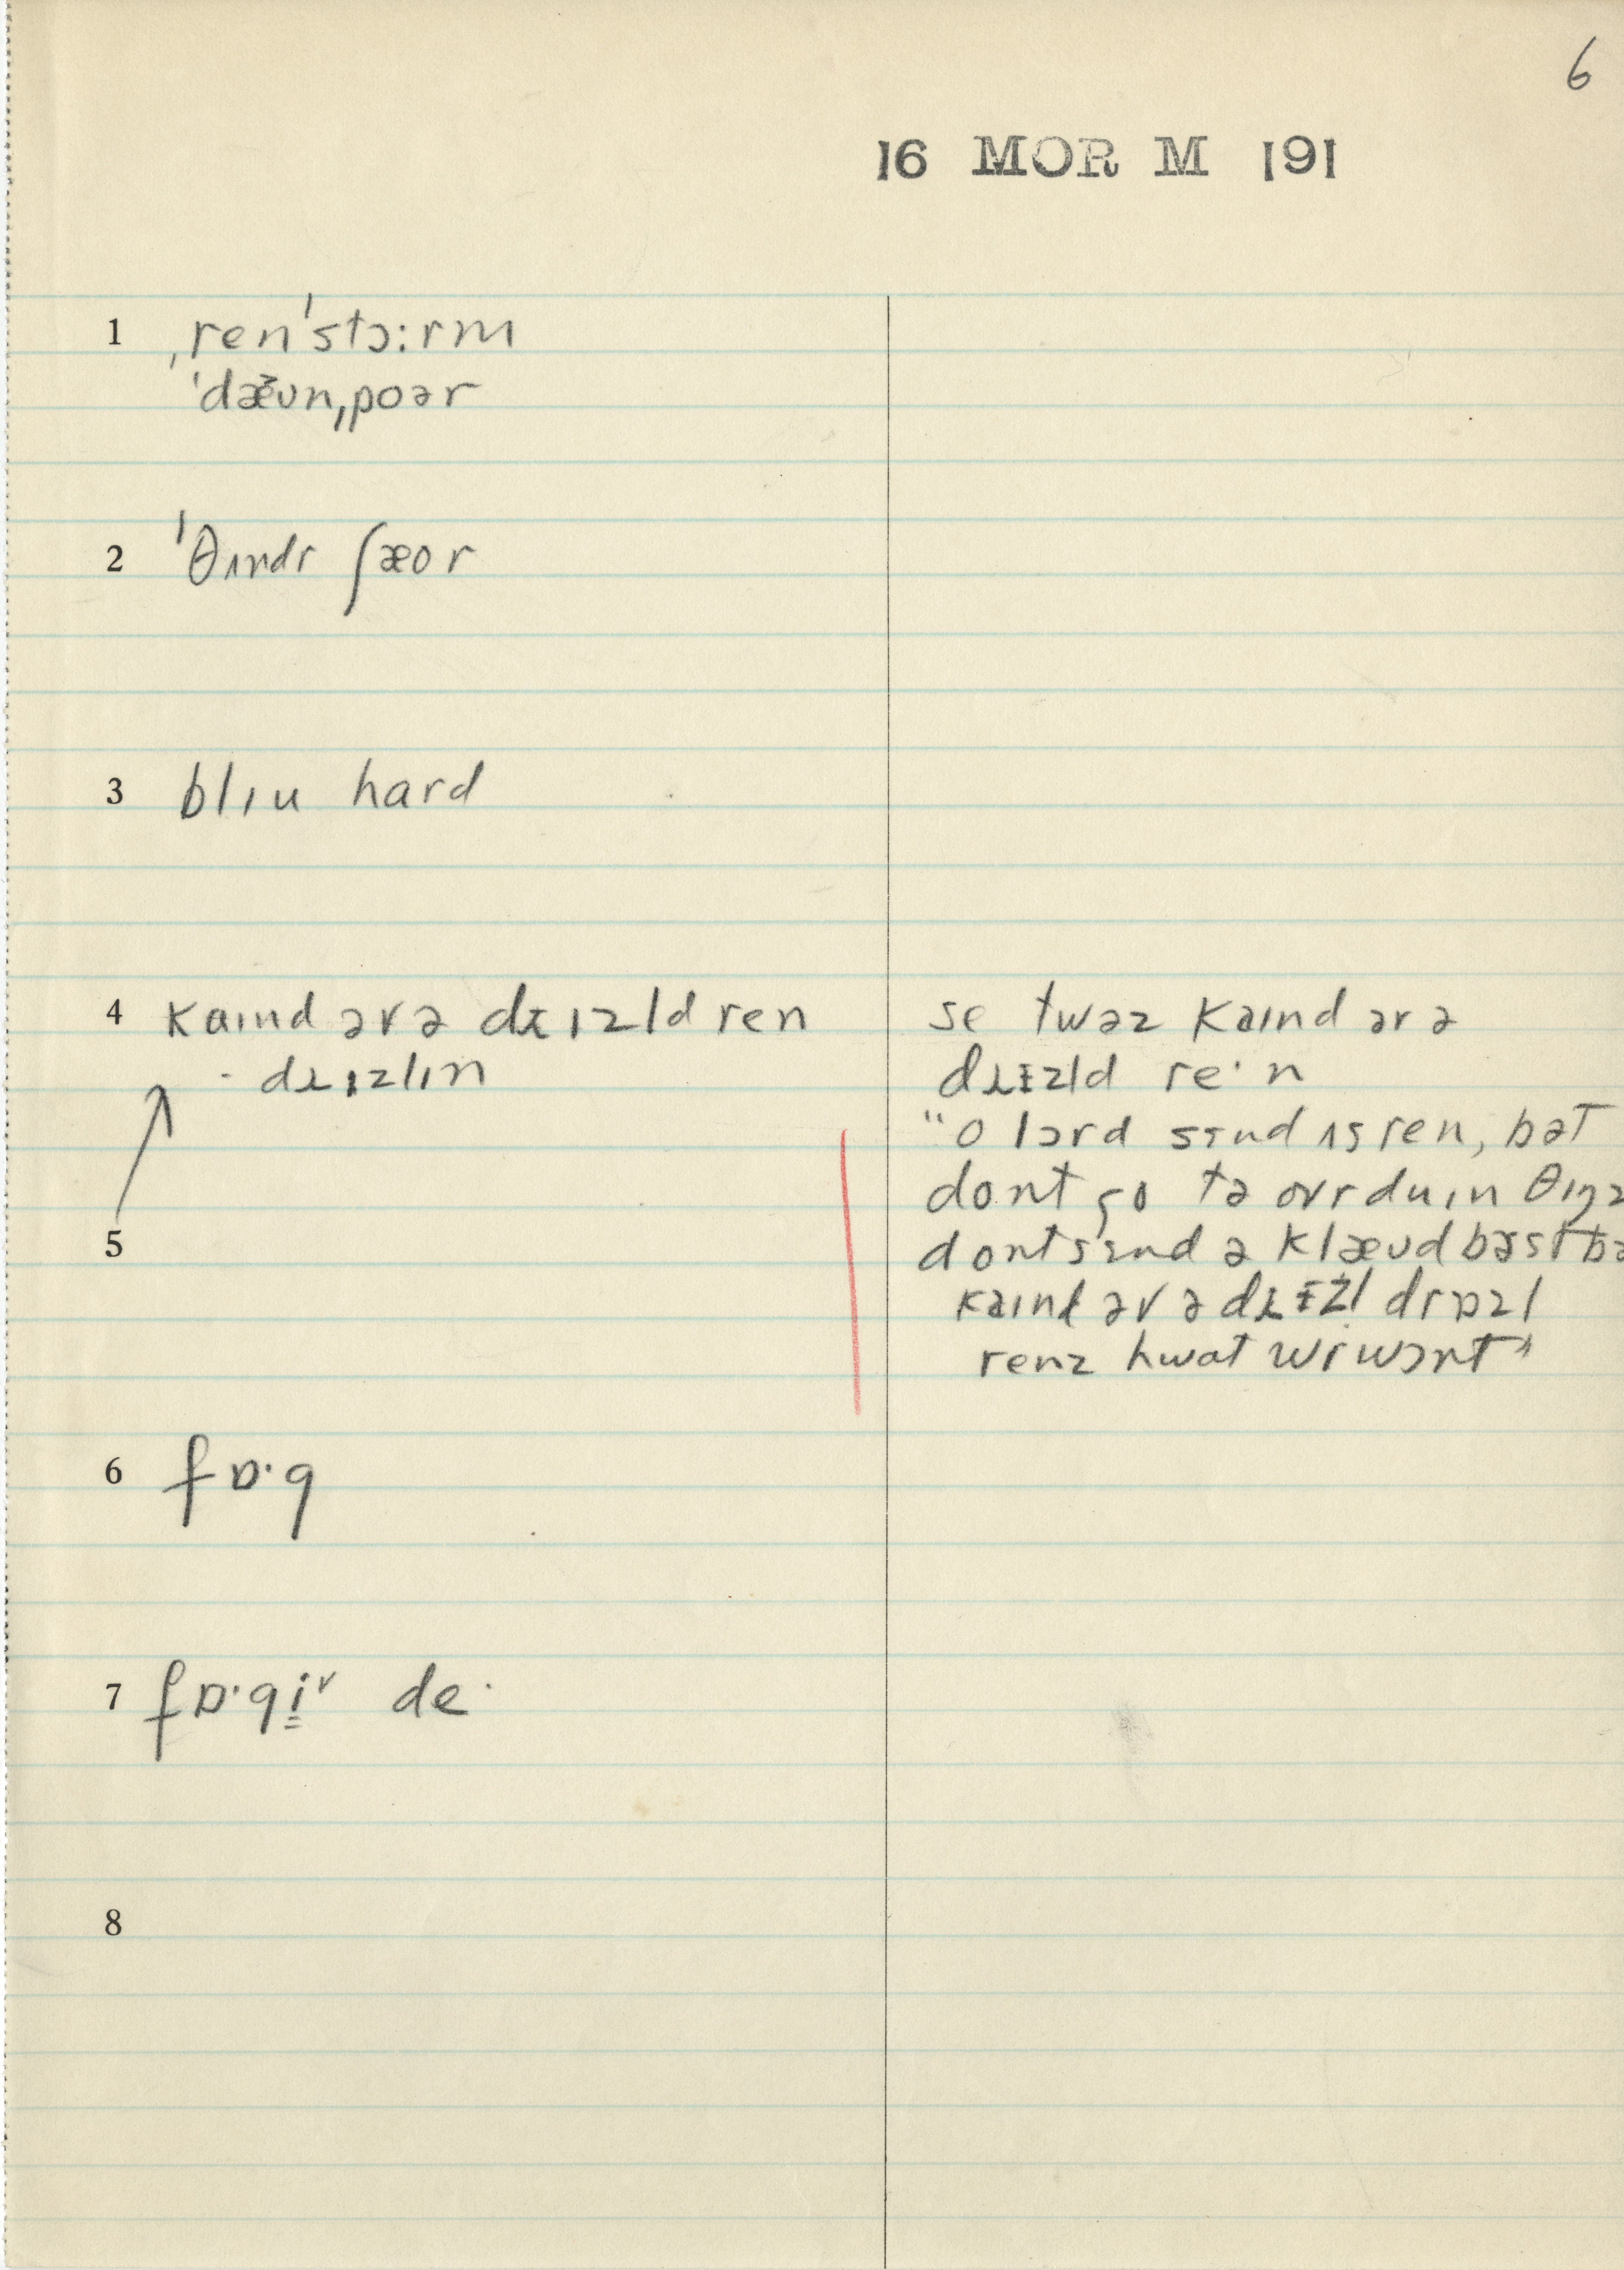 6
16 MOR M 191
1 ˌrenˈstɔ:rm
ˈdæ̆ʊnˌpoər
2 ˈθʌndr ʃæor
3 blɪu hard
4 kaɪnd əv ə drɪzld ren
drɪzlɪn
se twəz kaɪnd əv ə
drɪzld re·n
"o lɔrd sɛnd ʌs ren, bət
dont go tə ovrduɪn θɪŋz
dont sɛnd ə klæʊd bəst bə
kaɪnd əv ə drɪzl drɒzl
renz hwat wi wɔnt"
5
6 fɒ·g
7 fɒ·gi̳ˇ de·
8